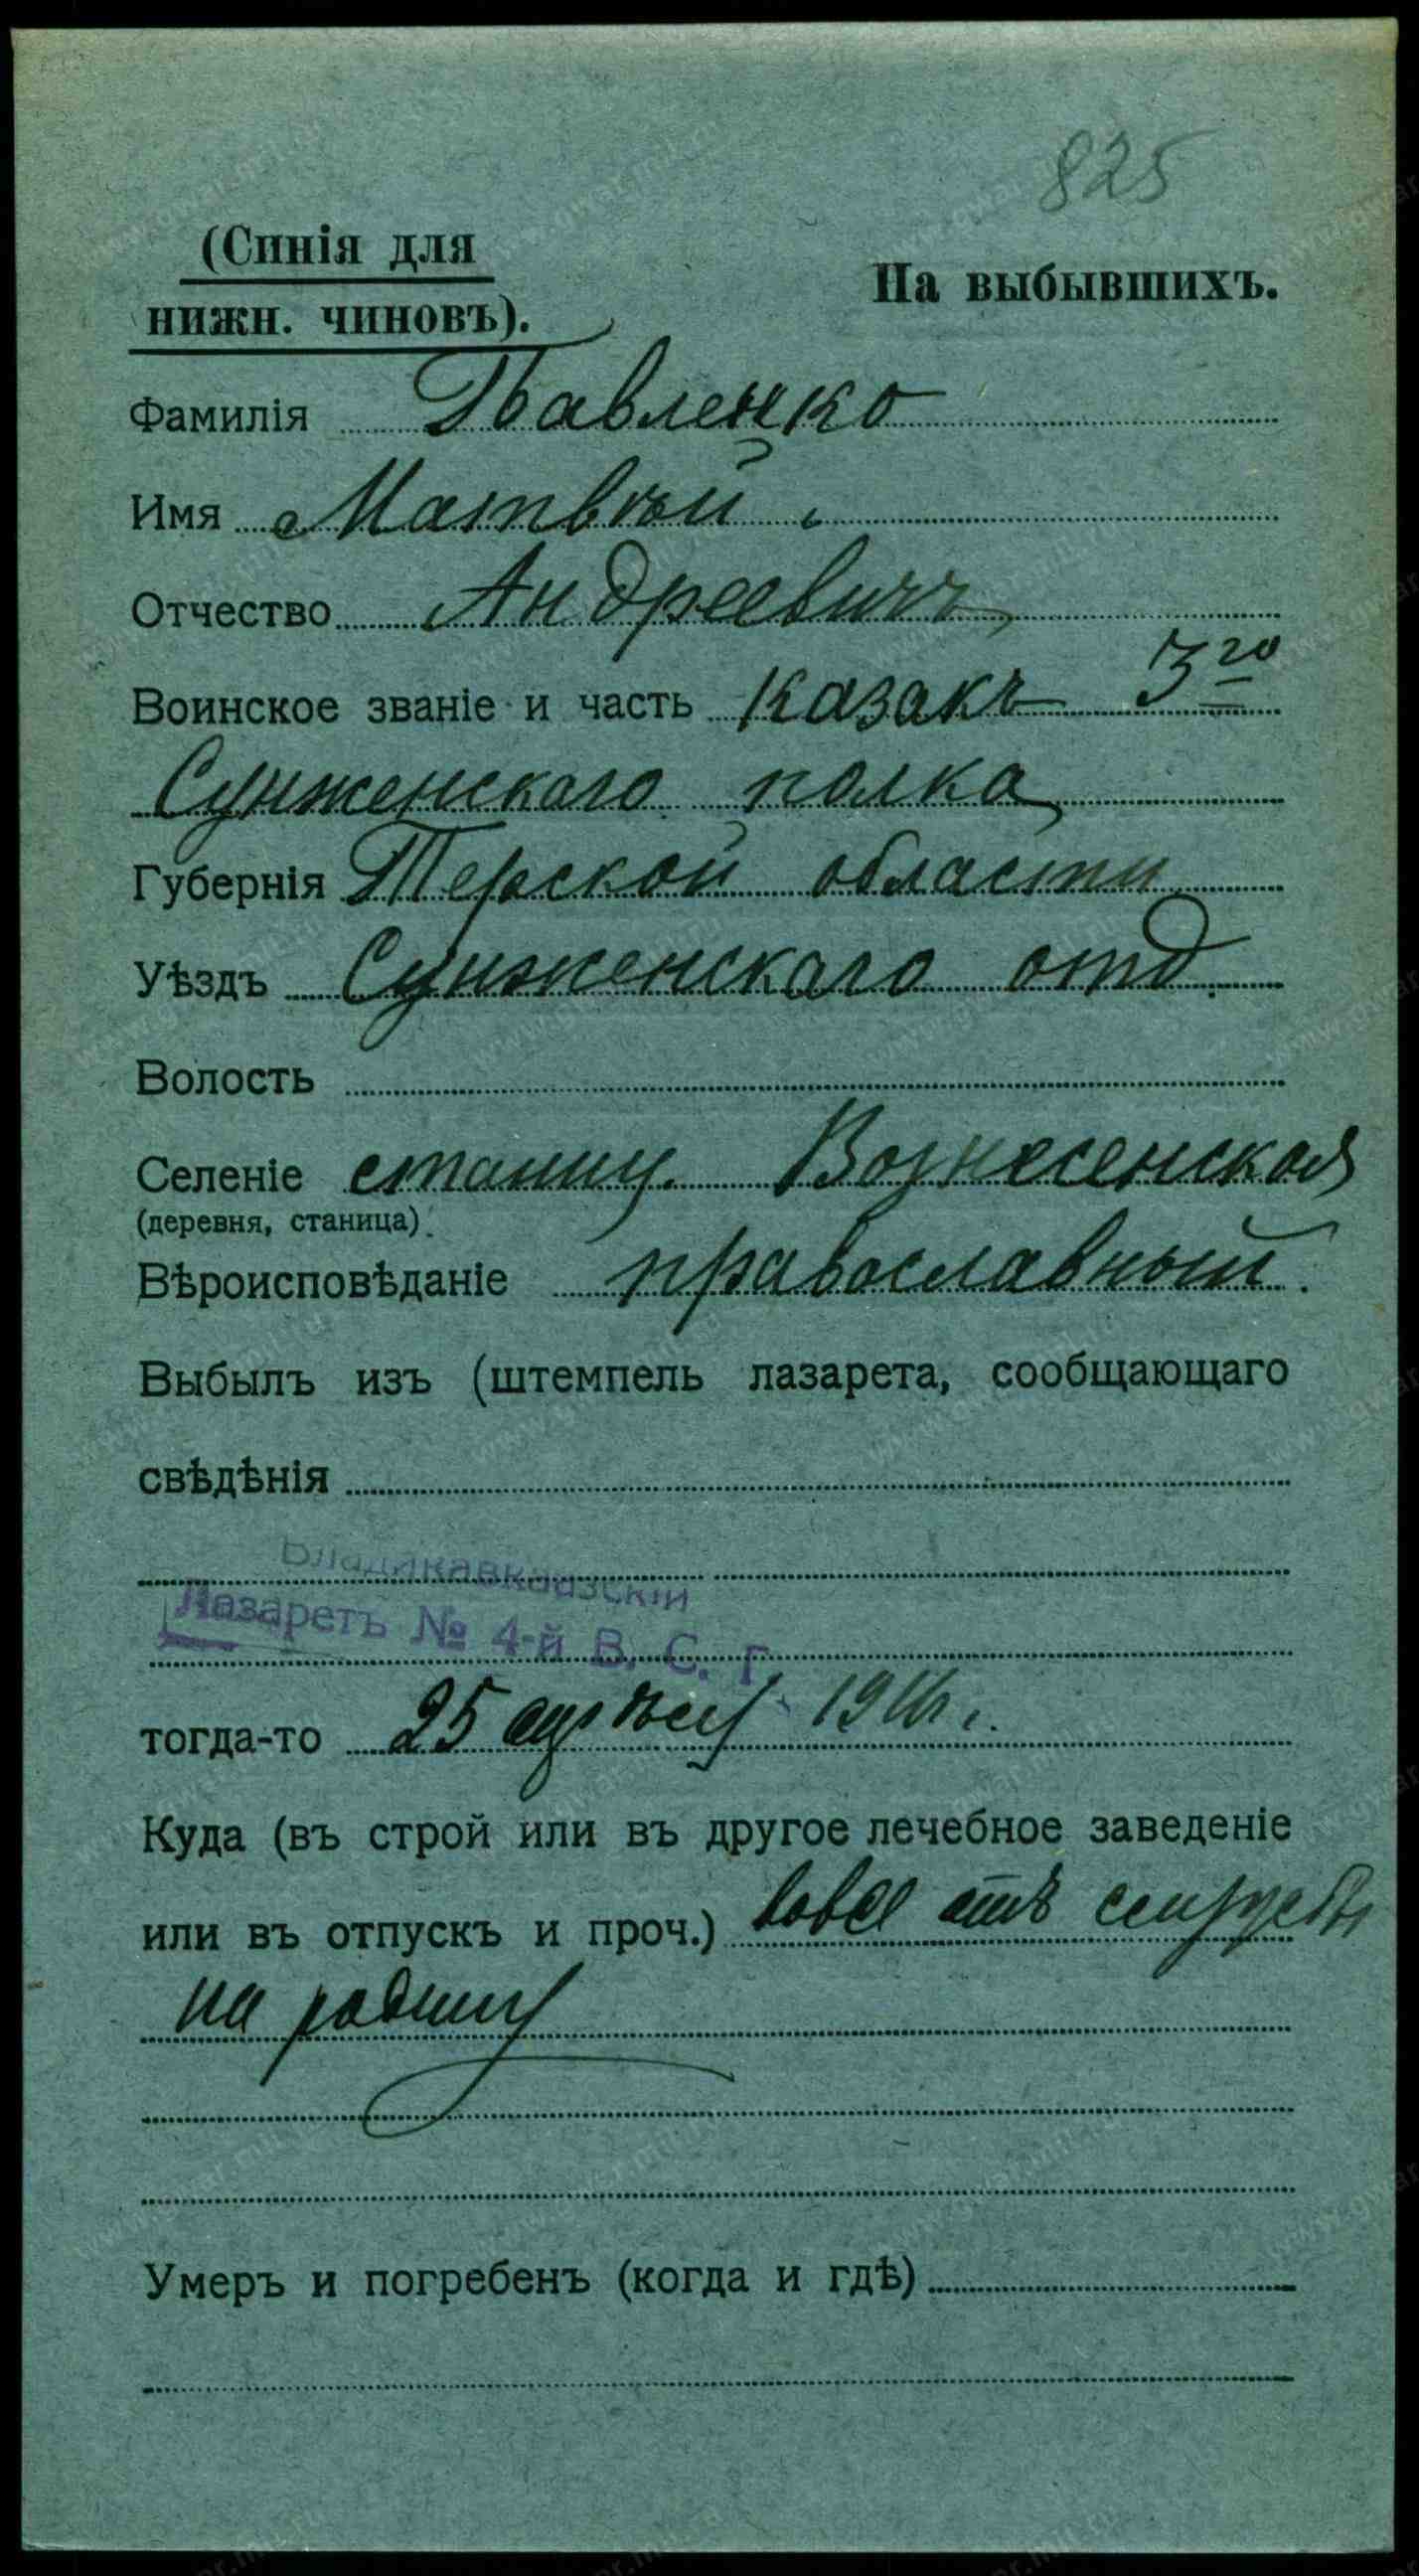 825
(Синія для
На выбывшихъ.
нижн. чиновъ).
Фамилія Павленко
Имя Матвѣй
Отчество Андреевичъ
Воинское званіе и часть казакъ 3го
Сунженскаго полка
Губернія Терской области
Уѣздъ Сунженскаго отд.
Волость
Селеніе станиц. Вознесенской
(деревня, станица).
Вѣроисповѣданіе православный.
Выбылъ изъ (штемпель лазарета, сообщающаго
свѣдѣнія
Владикавказскій
Лазаретъ № 4-й В. С. Г.
тогда-то 25 1916 г.
Куда (въ строй или въ другое лечебное заведеніе
или въ отпускъ и проч.) вовсе отъ службы
на родину
Умеръ и погребенъ (когда и гдѣ)